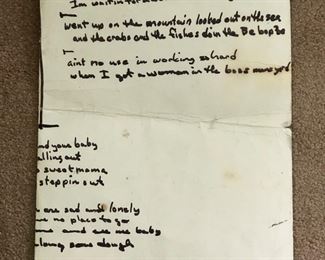 Im waitin for
went up on the mountain looked out on the sea
and the crabs and the fishes doin the Be bop Bo
aint no use in working so hard
when I got a woman in the boss mans yard
nd your baby
alling out
sweet mama
steppin out
are sad and lonely
no place to go
me and see me baby
long some dough